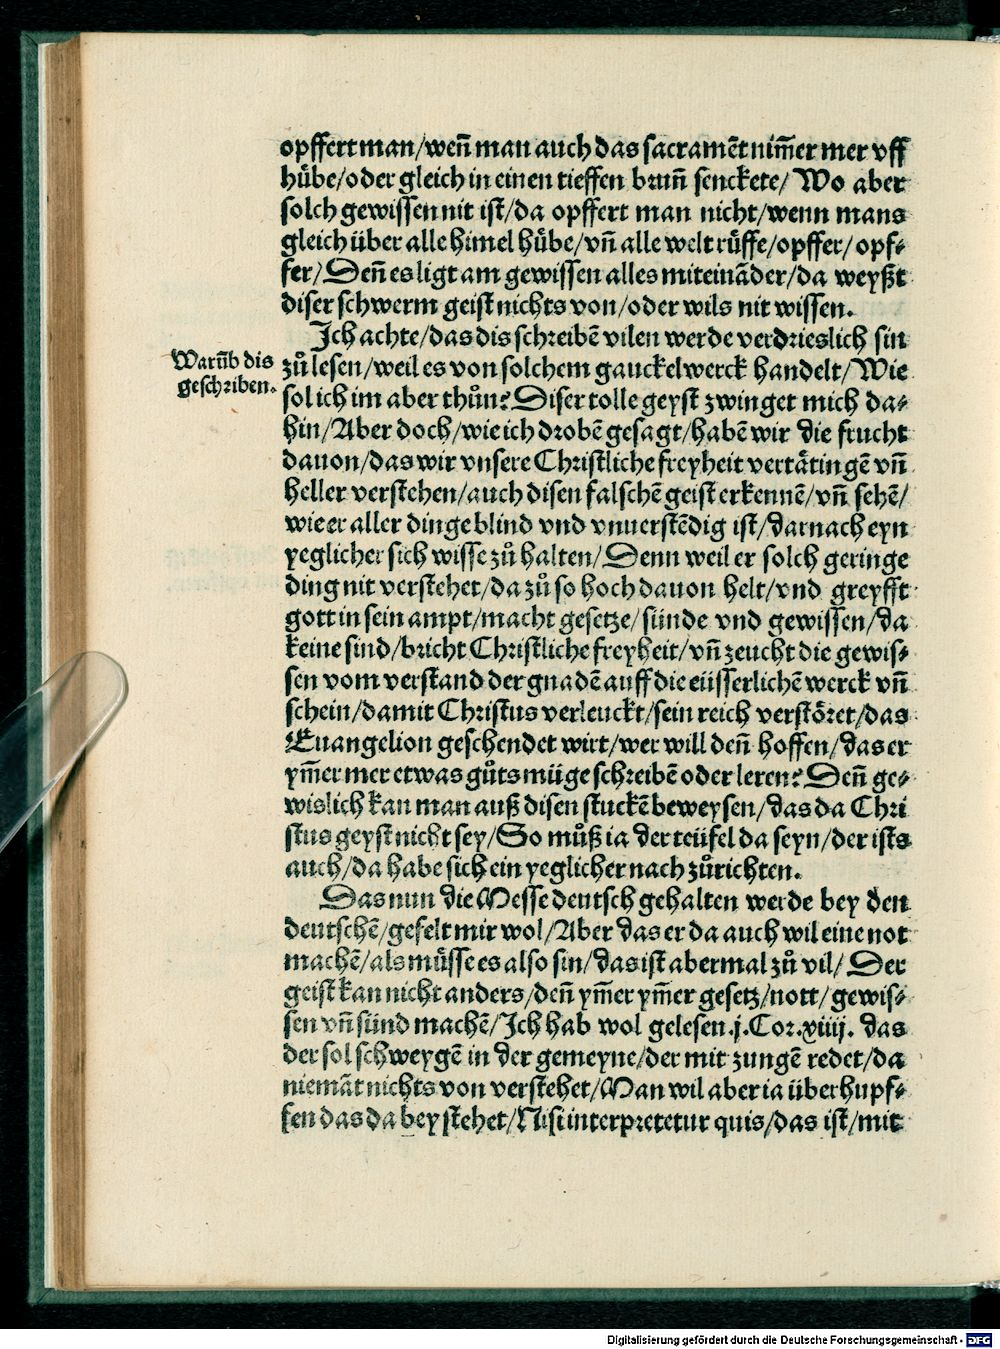 opffert man/weñ man auch das sacramēt nim̄er mer vff
hůbe/oder gleich in einen tieffen brun̄ senckete/ Wo aber
solch gewissen nit ist/da opffert man nicht/wenn mans
gleich über alle himel hůbe/vn̄ alle welt rüffe/opffer/ opf⸗
fer/ Den̄ es ligt am gewissen alles miteinãder/da weyßt
diser schwerm geist nichts von/oder wils nit wissen.
Ich achte/das dis schreibē vilen werde verdrieslich sin
Warum̄b dis
geschriben.
zů lesen/weil es von solchem gauckelwerck handelt/ Wie
sol ich im aber thůn? Diser tolle geyst zwinget mich da⸗
hin/Aber doch/wie ich drobē gesagt/habē wir die frucht
dauon/das wir vnsere Christliche freyheit vertätingē vn̄
heller verstehen/auch disen falschē geist erkennē/vn̄ sehē/
wie er aller dinge blind vnd vnuerstēdig ist/darnach eyn
yeglicher sich wisse zů halten/ Denn weil er solch geringe
ding nit verstehet/da zů so hoch dauon helt/vnd greyfft
gott in sein ampt/macht gesetze/sünde vnd gewissen/da
keine sind/bricht Christliche freyheit/vn̄ zeucht die gewis⸗
sen vom verstand der gnadē auff die eüsserlichē werck vn̄
schein/damit Christus verleuckt/sein reich verstöret/das
Euangelion geschendet wirt/wer will den̄ hoffen/das er
ym̄er mer etwas gůts müge schreibē oder leren? Den̄ ge⸗
wislich kan man auß disen stuckē beweysen/das da Chri
stus geyst nicht sey/So můß ia der teüfel da seyn/der ists
auch/da habe sich ein yeglicher nach zůrichten.
Das nun die Messe deutsch gehalten werde bey den
deutschē/gefelt mir wol/Aber das er da auch wil eine not
machē/als müsse es also sin/das ist abermal zů vil/ Der
geist kan nicht anders/den̄ ym̄er ym̄er gesetz/nott/gewis⸗
sen vn̄ sünd machē/Ich hab wol gelesen.j.Cor.xiiij. das
der sol schweygē in der gemeyne/der mit zungē redet/da
niemãt nichts von verstehet/Man wil aber ia überhupf⸗
fen das da bey stehet/Nisi interpretetur quis/das ist/mit
Digitalisierung gefördert durch die Deutsche Forschungsgemeinschaft - DFG